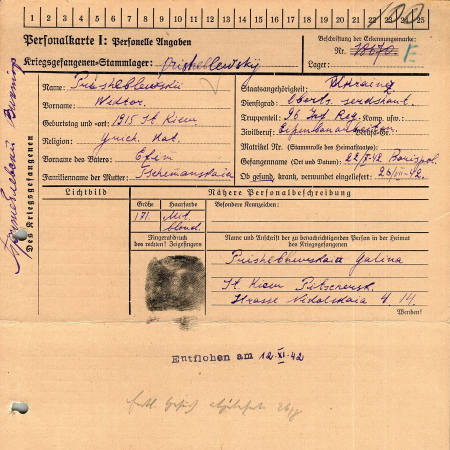 1 2 3 4 5 6 7 8 9 10 11 12 13 14 15 16 17 18 19 20 21 22 23 24 25
Personalkarte I: Personelle Angaben
Beschriftung der Erkennungsmarke
Nr. 18670 E
Kriegsgefangenen-Stammlager: Prisheblewsky
Lager:
Des Kriegsgefangenen
Name: Prisheblewskii
Vorname: Wiktor.
Geburtstag und -ort: 1915 St Kiew
Religion: Griech. Kat.
Vorname des Vaters: Efim
Familienname der Mutter:
Staatsangehörigkeit: Ukraine
Dienstgrad:
Truppenteil: 96 Inf Reg. Komp. usw.:
Zivilberuf:
Matrikel Nr. (Stammrolle des Heimatstaates):
Gefangennahme (Ort und Datum): Borispol
Ob gesund, krank, verwundet eingeliefert:
Lichtbild
Nähere Personalbeschreibung
Größe
Haarfarbe
Besondere Kennzeichen:
171.
Mit. blond.
Fingerabdruck
des rechten! Zeigefingers
Name und Anschrift der zu benachrichtigenden Person in der Heimat
des Kriegsgefangenen
Galina
St. Kiew
Strasse 4. 14.
Wenden!
Entflohen am 12.XI.42